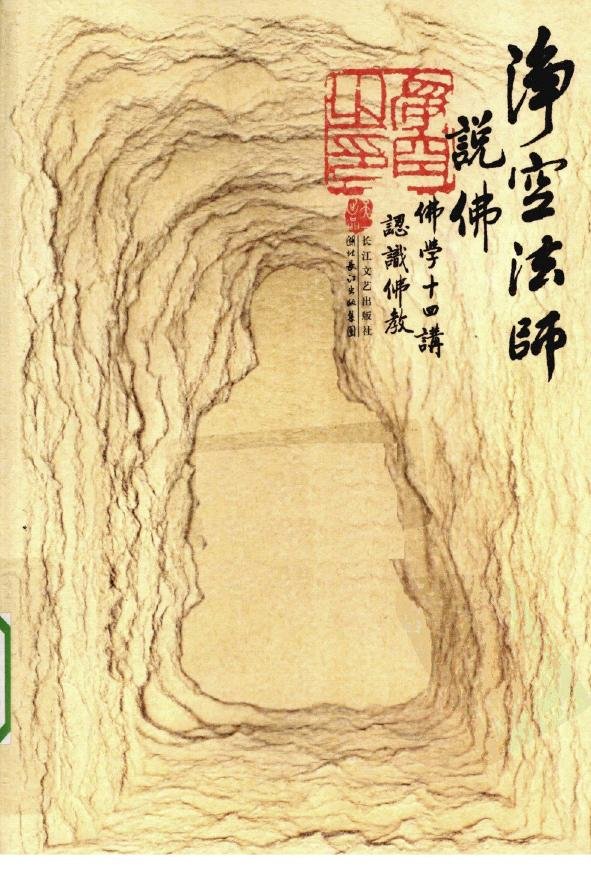 淨空法師
說佛
佛學十四講
認識佛教
长江文艺出版社
湖北長江出版集團